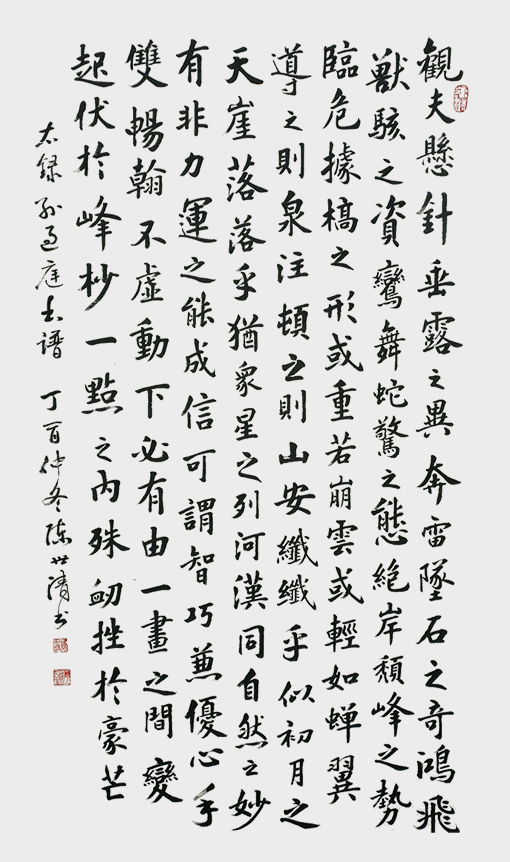 觀夫懸針垂露之異奔雷墜石之奇鴻飛
獸駭之資鸞舞蛇驚之態絶岸頹峰之勢
臨危據槁之形或重若崩雲或輕如蟬翼
導之則泉注頓之則山安纖纖乎似初月之
天崖落落乎猶衆星之列河漢同自然之妙
有非力運之能成信可謂智巧兼優心手
雙暢翰不虛動下必有由一畫之間變
起伏於峰杪一點之內殊衄挫於豪芒
右錄孫過庭書譜 丁酉仲冬陳世清書